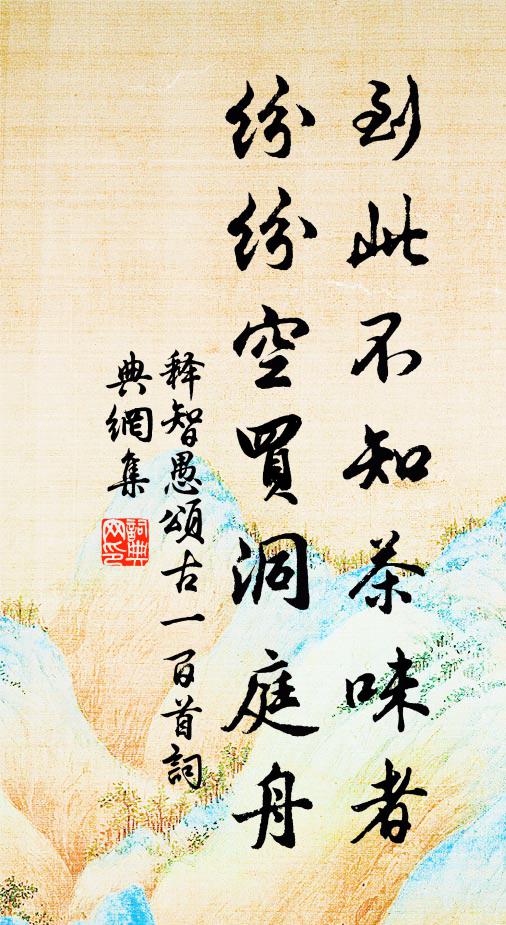 到此不知茶味者
紛紛空買洞庭舟
释智愚頌古一百首詞
典網集
詞典
网印